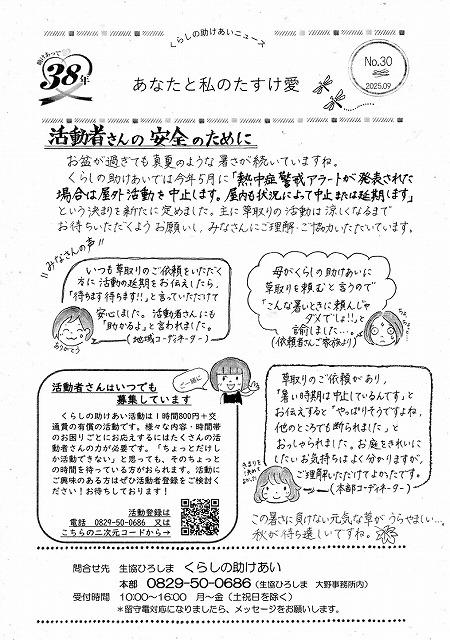 くらしの助けあいニュース
助けあって
38年
あなたと私のたすけ愛
No.30
2025.09
活動者さんの安全のために
お盆が過ぎても真夏のような暑さが続いていますね。
くらしの助けあいでは今年5月に「熱中症警戒アラートが発表された
場合は屋外活動を中止します。屋内も状況によって中止または延期します」
という決まりを新たに定めました。主に草取りの活動は涼しくなるまで
お待ちいただくようお願いし、みなさんにご理解・ご協力いただいています。
みなさんの声
いつも草取りのご依頼をいただく
方に活動の延期をお伝えしたら、
「待ちます待ちます!!」と言っていただけて
安心しました。活動者さんにも
「助かるよ」と言われました。
(地域コーディネーター)
ありがとう
母がくらしの助けあいに
草取りを頼むと言うので
「こんな暑いときに頼んじゃ
ダメでしょ!!」と
諭しました…。
(依頼者さんご家族より)
ご一緒に
活動者さんはいつでも
募集しています
くらしの助けあい活動は1時間800円+交
通費の有償の活動です。様々な内容・時間帯
のお困りごとにお応えするにはたくさんの活
動者さんの力が必要です。「ちょっとだけし
か活動できない」と思っても、そのちょっと
の時間を待っている方がおられます。活動に
ご興味のある方はぜひ活動者登録をご検討く
ださい!お待ちしております!
活動登録は
電話 0829-50-0686 又は
こちらの二次元コードから→
草取りのご依頼があり、
「暑い時期は中止しているんです」と
お伝えすると「やっぱりそうですよね、
他のところでも断られました」と
おっしゃられました。お庭をきれいに
したいお気持ちはよく分かりますが、
ご理解いただけてよかったです。
(本部コーディネーター)
この暑さに負けない元気な草がうらやましい…。
秋が待ち遠しいですね。
問合せ先 生協ひろしま くらしの助けあい
本部 0829-50-0686 (生協ひろしま 大野事務所内)
受付時間 10:00～16:00 月～金(土祝日を除く)
*留守電対応になりましたら、メッセージをお願いします。